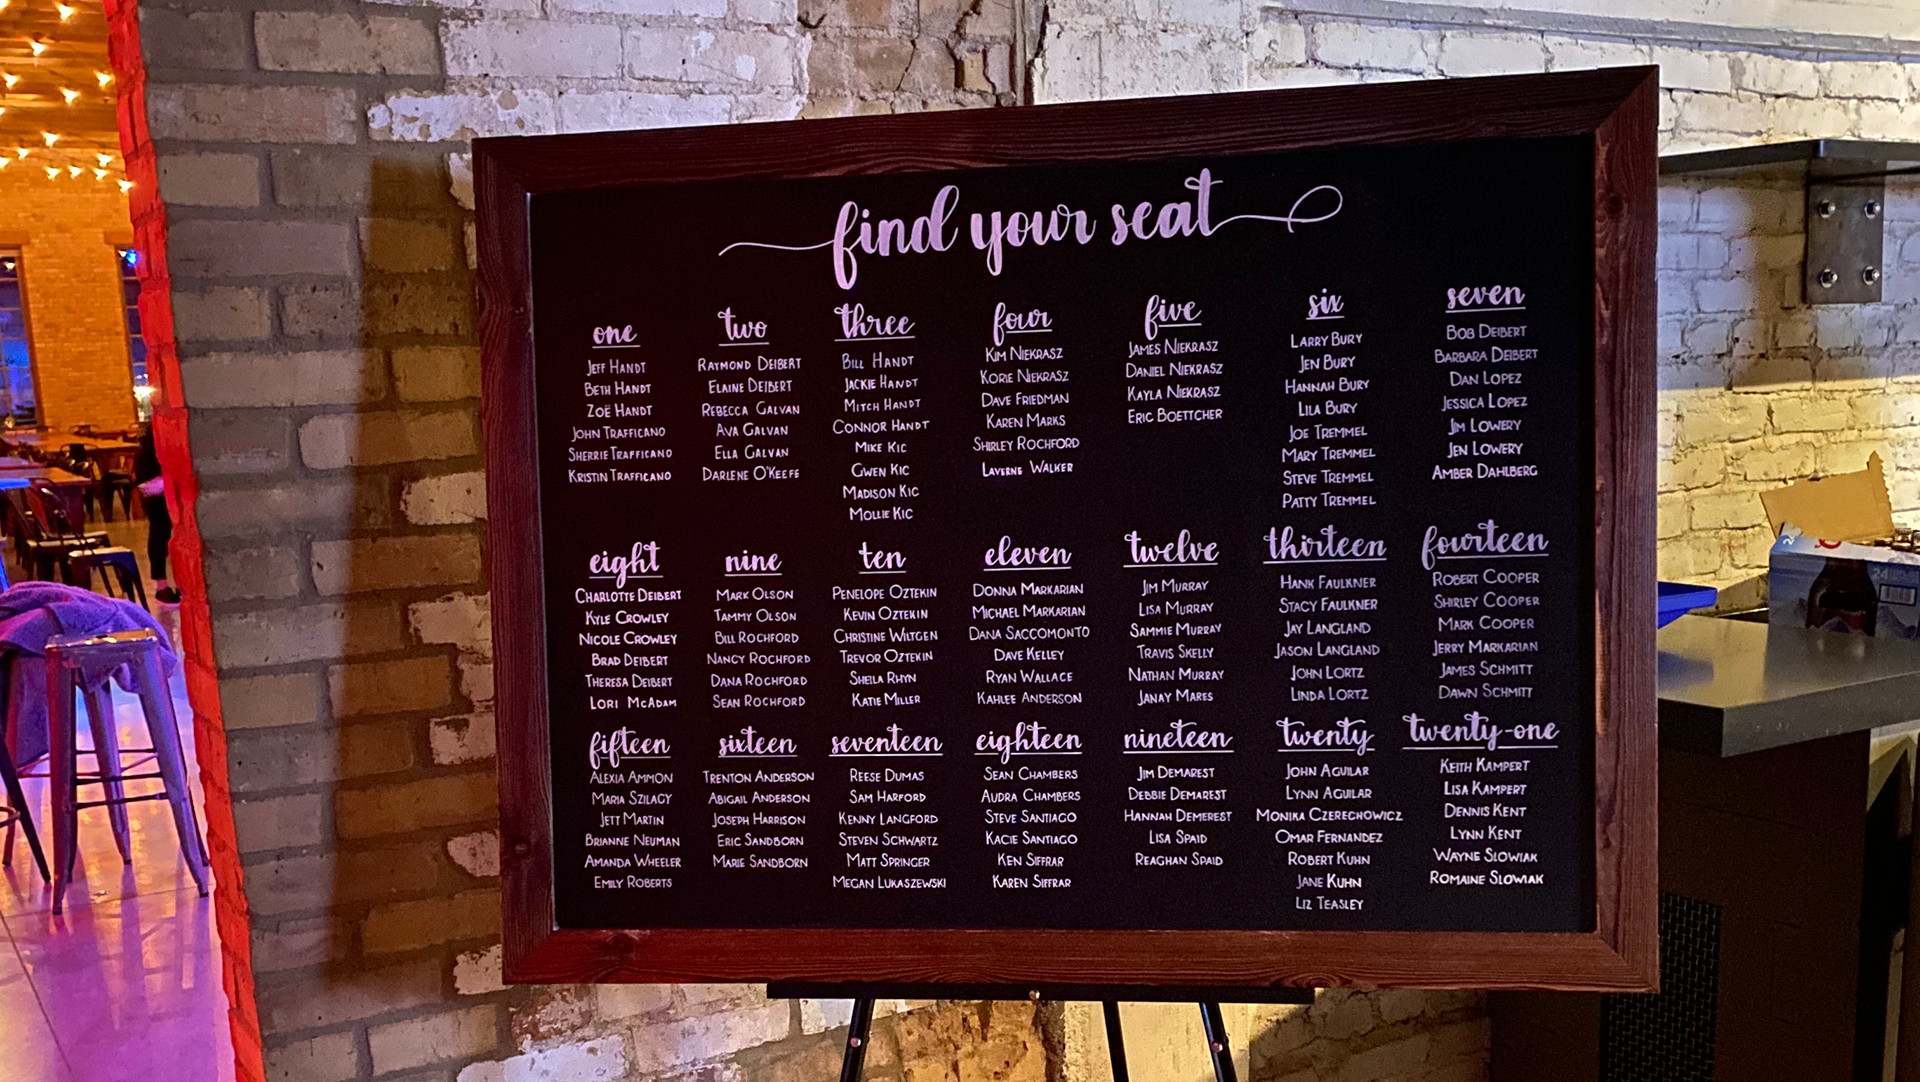 find your seat
one
Jeff Handt
Beth Handt
Zoë Handt
John Trafficano
Sherrie Trafficano
Kristin Trafficano
two
Raymond Deibert
Elaine Deibert
Rebecca Galvan
Ava Galvan
Ella Galvan
Darlene O'Keefe
three
Bill Handt
Jackie Handt
Mitch Handt
Connor Handt
Mike Kic
Gwen Kic
Madison Kic
Mollie Kic
four
Kim Niekrasz
Korie Niekrasz
Dave Friedman
Karen Marks
Shirley Rochford
Laverne Walker
five
James Niekrasz
Daniel Niekrasz
Kayla Niekrasz
Eric Boettcher
six
Larry Bury
Jen Bury
Hannah Bury
Lila Bury
Joe Tremmel
Mary Tremmel
Steve Tremmel
Patty Tremmel
seven
Bob Deibert
Barbara Deibert
Dan Lopez
Jessica Lopez
Jim Lowery
Jen Lowery
Amber Dahlberg
eight
Charlotte Deibert
Kyle Crowley
Nicole Crowley
Brad Deibert
Theresa Deibert
Lori McAdam
nine
Mark Olson
Tammy Olson
Bill Rochford
Nancy Rochford
Dana Rochford
Sean Rochford
ten
Penelope Oztekin
Kevin Oztekin
Christine Wiltgen
Trevor Oztekin
Sheila Rhyn
Katie Miller
eleven
Donna Markarian
Michael Markarian
Dana Saccomonto
Dave Kelley
Ryan Wallace
Kahlee Anderson
twelve
Jim Murray
Lisa Murray
Sammie Murray
Travis Skelly
Nathan Murray
Janay Mares
thirteen
Hank Faulkner
Stacy Faulkner
Jay Langland
Jason Langland
John Lortz
Linda Lortz
fourteen
Robert Cooper
Shirley Cooper
Mark Cooper
Jerry Markarian
James Schmitt
Dawn Schmitt
fifteen
Alexia Ammon
Maria Szilacy
Jett Martin
Brianne Neuman
Amanda Wheeler
Emily Roberts
sixteen
Trenton Anderson
Abigail Anderson
Joseph Harrison
Eric Sandborn
Marie Sandborn
seventeen
Reese Dumas
Sam Harford
Kenny Langford
Steven Schwartz
Matt Springer
Megan Lukaszewski
eighteen
Sean Chambers
Audra Chambers
Steve Santiago
Kacie Santiago
Ken Siffrar
Karen Siffrar
nineteen
Jim Demarest
Debbie Demarest
Hannah Demerest
Lisa Spaid
Reaghan Spaid
twenty
John Aguilar
Lynn Aguilar
Monika Czerechowicz
Omar Fernandez
Robert Kuhn
Jane Kuhn
Liz Teasley
twenty-one
Keith Kampert
Lisa Kampert
Dennis Kent
Lynn Kent
Wayne Slowiak
Romaine Slowiak
24